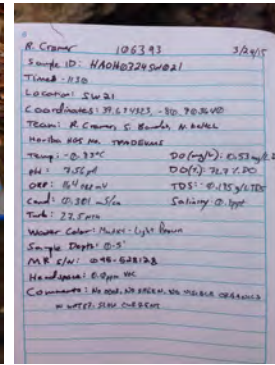 R. Cramer 106393 3/24/15
Sample ID: HAOH0324SW021
Time: 1130
Location: SW21
Coordinates: 39.674323, -80.
Team: R. Cramer, S. M.
Horiba
Temp: -0.83°C DO (mg/L):
pH: 7.56 pH DO (%): 72.7% DO
ORP: mV TDS: 0.195 g/L TDS
Cond: 0.301 mS/cm Salinity: 0.1ppt
Turb: 22.5 NTU
Water Color: - Light Brown
Sample Depth: 0-5"
MR S/N: 096-528128
Headspace: 0.0ppm VOC
Comments: No odor, no sheen, no visible organics
in water. Slow current